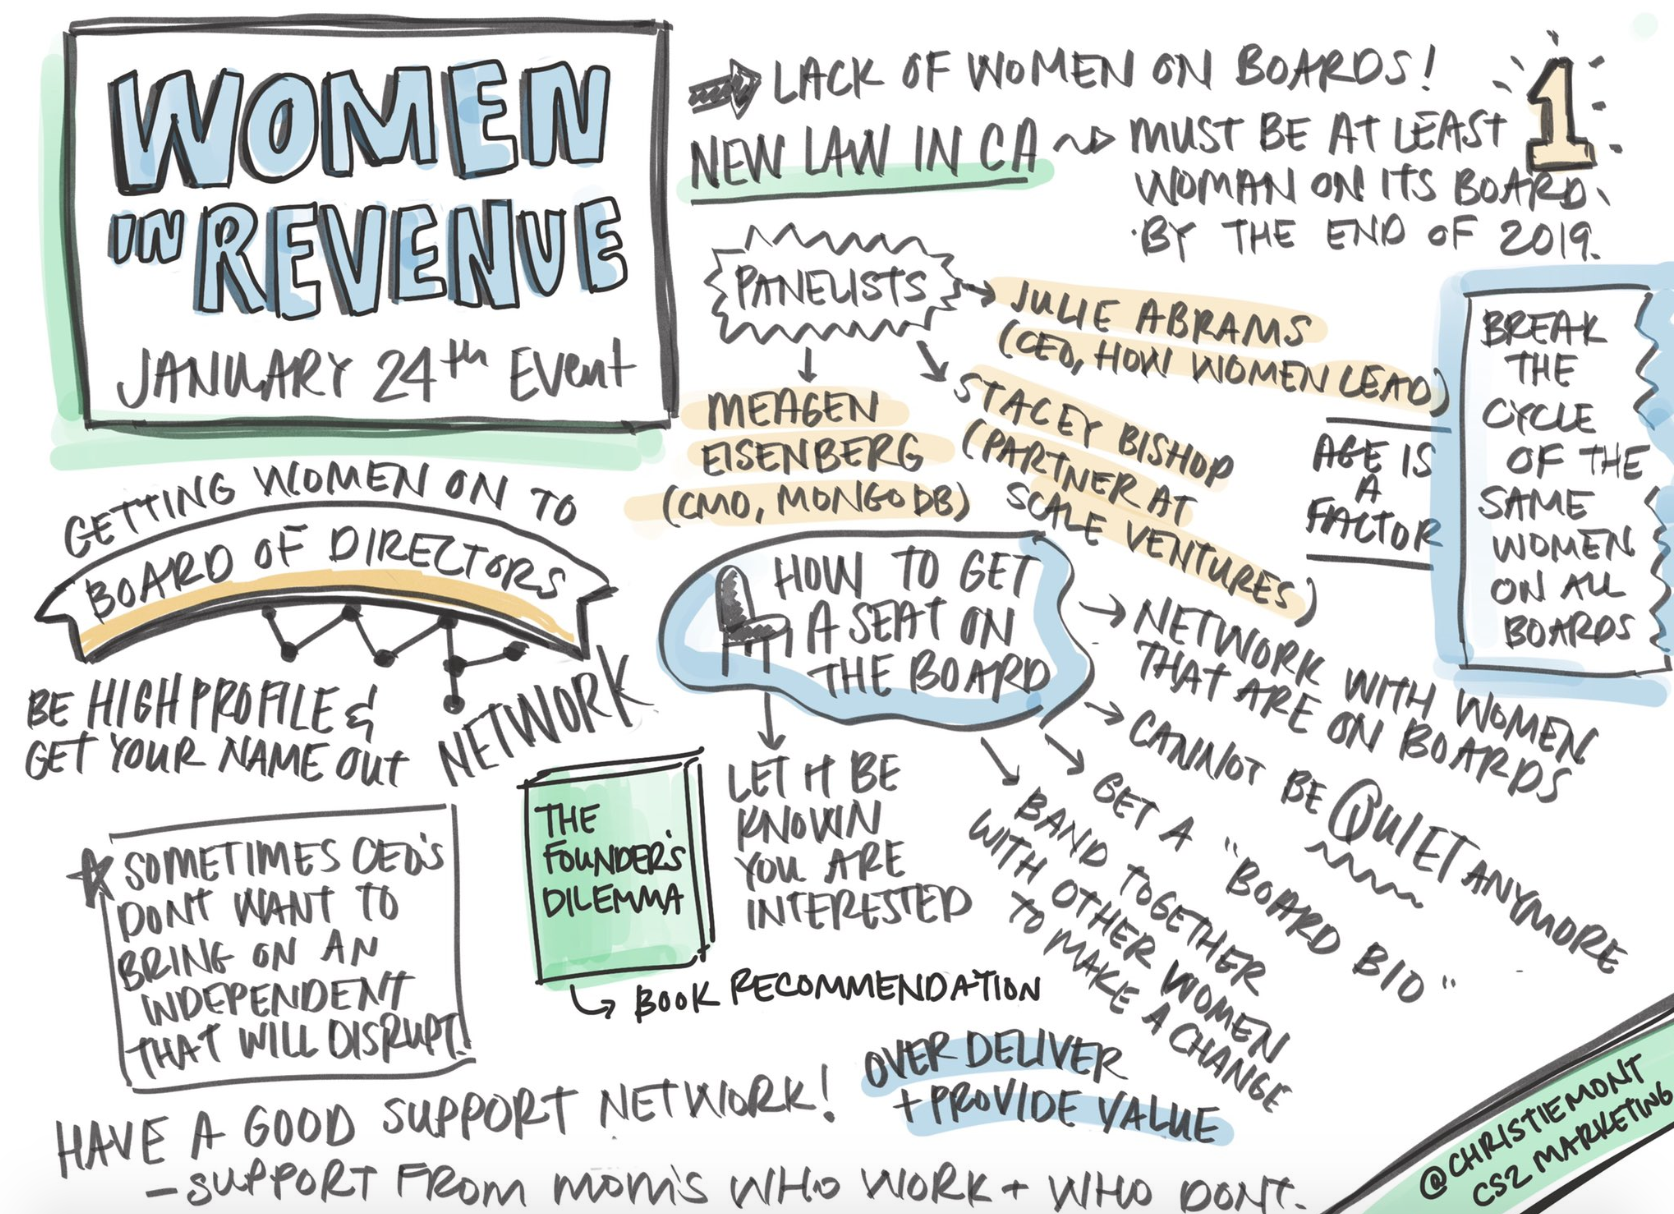 WOMEN
IN REVENUE
JANUARY 24th EVENT
LACK OF WOMEN ON BOARDS!
NEW LAW IN CA
MUST BE AT LEAST 1
WOMAN ON ITS BOARD
BY THE END OF 2019.
PANELISTS
JULIE ABRAMS
(CEO, HOW WOMEN LEAD)
STACEY BISHOP
(PARTNER AT
SCALE VENTURES)
MEAGEN
EISENBERG
(CMO, MONGODB)
AGE IS
A
FACTOR
BREAK
THE
CYCLE
OF THE
SAME
WOMEN
ON ALL
BOARDS
GETTING WOMEN ON TO
BOARD OF DIRECTORS
BE HIGH PROFILE &
GET YOUR NAME OUT
NETWORK
HOW TO GET
A SEAT ON
THE BOARD
NETWORK WITH WOMEN
THAT ARE ON BOARDS
CANNOT BE QUIET ANYMORE
GET A "BOARD BIO"
BAND TOGETHER
WITH OTHER WOMEN
TO MAKE A CHANGE
LET IT BE
KNOWN
YOU ARE
INTERESTED
THE
FOUNDER'S
DILEMMA
BOOK RECOMMENDATION
SOMETIMES CEO'S
DONT WANT TO
BRING ON AN
INDEPENDENT
THAT WILL DISRUPT!
OVER DELIVER
+ PROVIDE VALUE
HAVE A GOOD SUPPORT NETWORK!
- SUPPORT FROM MOM'S WHO WORK + WHO DONT.
@CHRISTIEMONT
CS2 MARKETING